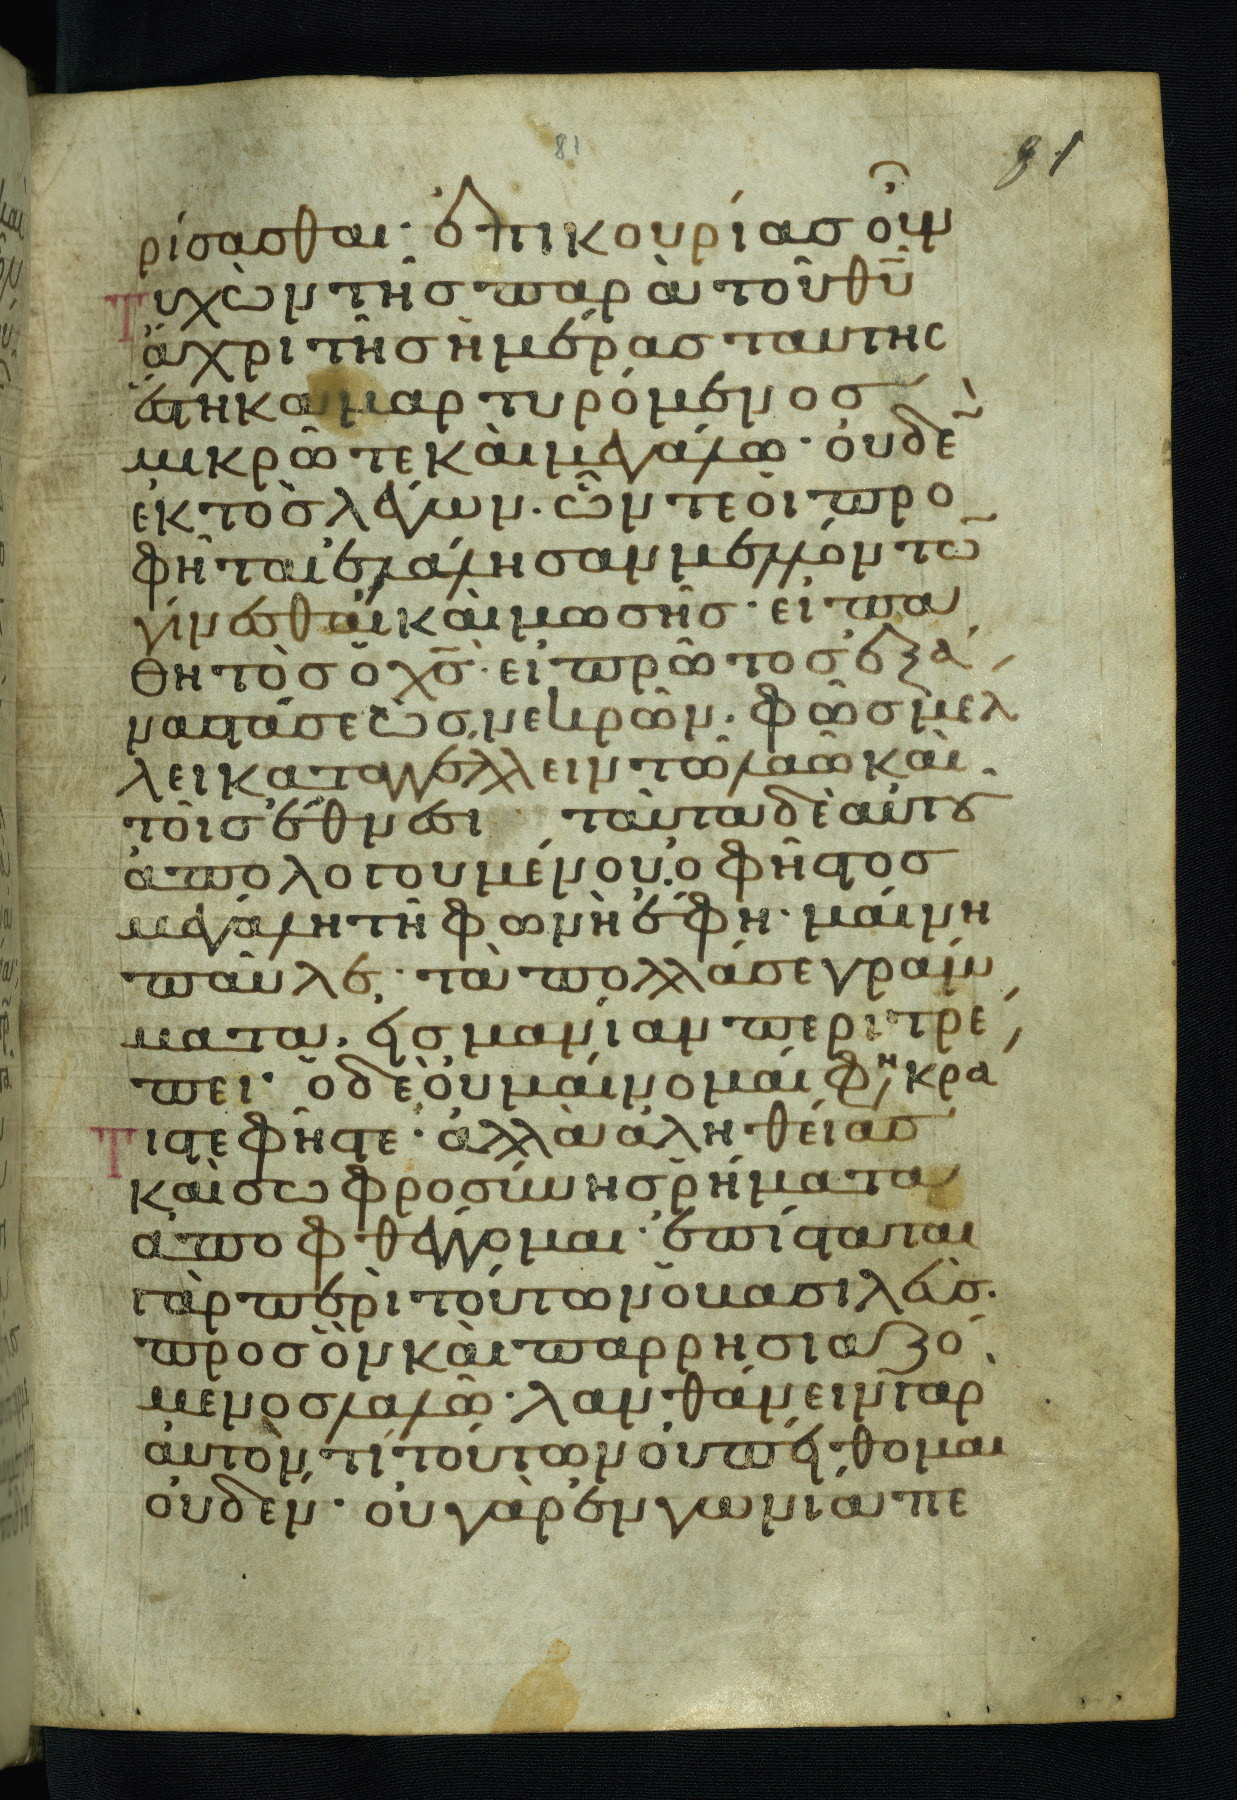 81
81
ρίσασθαι· ἐπικουρίας οὖν
τυχὼν τῆς παρὰ τοῦ θ̅υ̅
ἄχρι τῆς ἡμέρας ταύτης
ἕστηκα μαρτυρόμενος
μικρῶ τε καὶ μεγάλω· οὐδὲ̅
ἐκτὸς λέγων· ὧν τε οἱ προ
φῆται ἐλάλησαν μελλόντω̅
γίνεσθαι καὶ μωσῆς· εἰ πα
θητὸς ὁ χ̅σ̅· εἰ πρῶτος ἐξ ἀ
ναστάσεως νεκρῶν· φῶς μέλ
λει καταγγέλλειν τῶ λαῶ καὶ
τοῖς ἔθνεσι ταῦτα δὲ αὐτοῦ
ἀπολογουμένου· ὁ φῆστος
μεγάλη τῆ φωνῆ ἔφη· μαίνη
παῦλε· τὰ πολλά σε γράμ
ματα· εἰς μανίαν περιτρέ
πει· ὁ δὲ οὐ μαίνομαί φη κρά
τιστε φῆστε· ἀλλὰ ἀληθείας
καὶ σωφροσύνης ῥήματα
ἀποφθέγγομαι· ἐπίσταται
γὰρ περὶ τούτων ὁ βασιλεύς·
πρὸς ὃν καὶ παρρησιαζό
μενος λαλῶ· λανθάνειν γὰρ
αὐτόν τι τούτων οὐ πείθομαι
οὐδέν· οὐ γὰρ ἐν γωνία πε